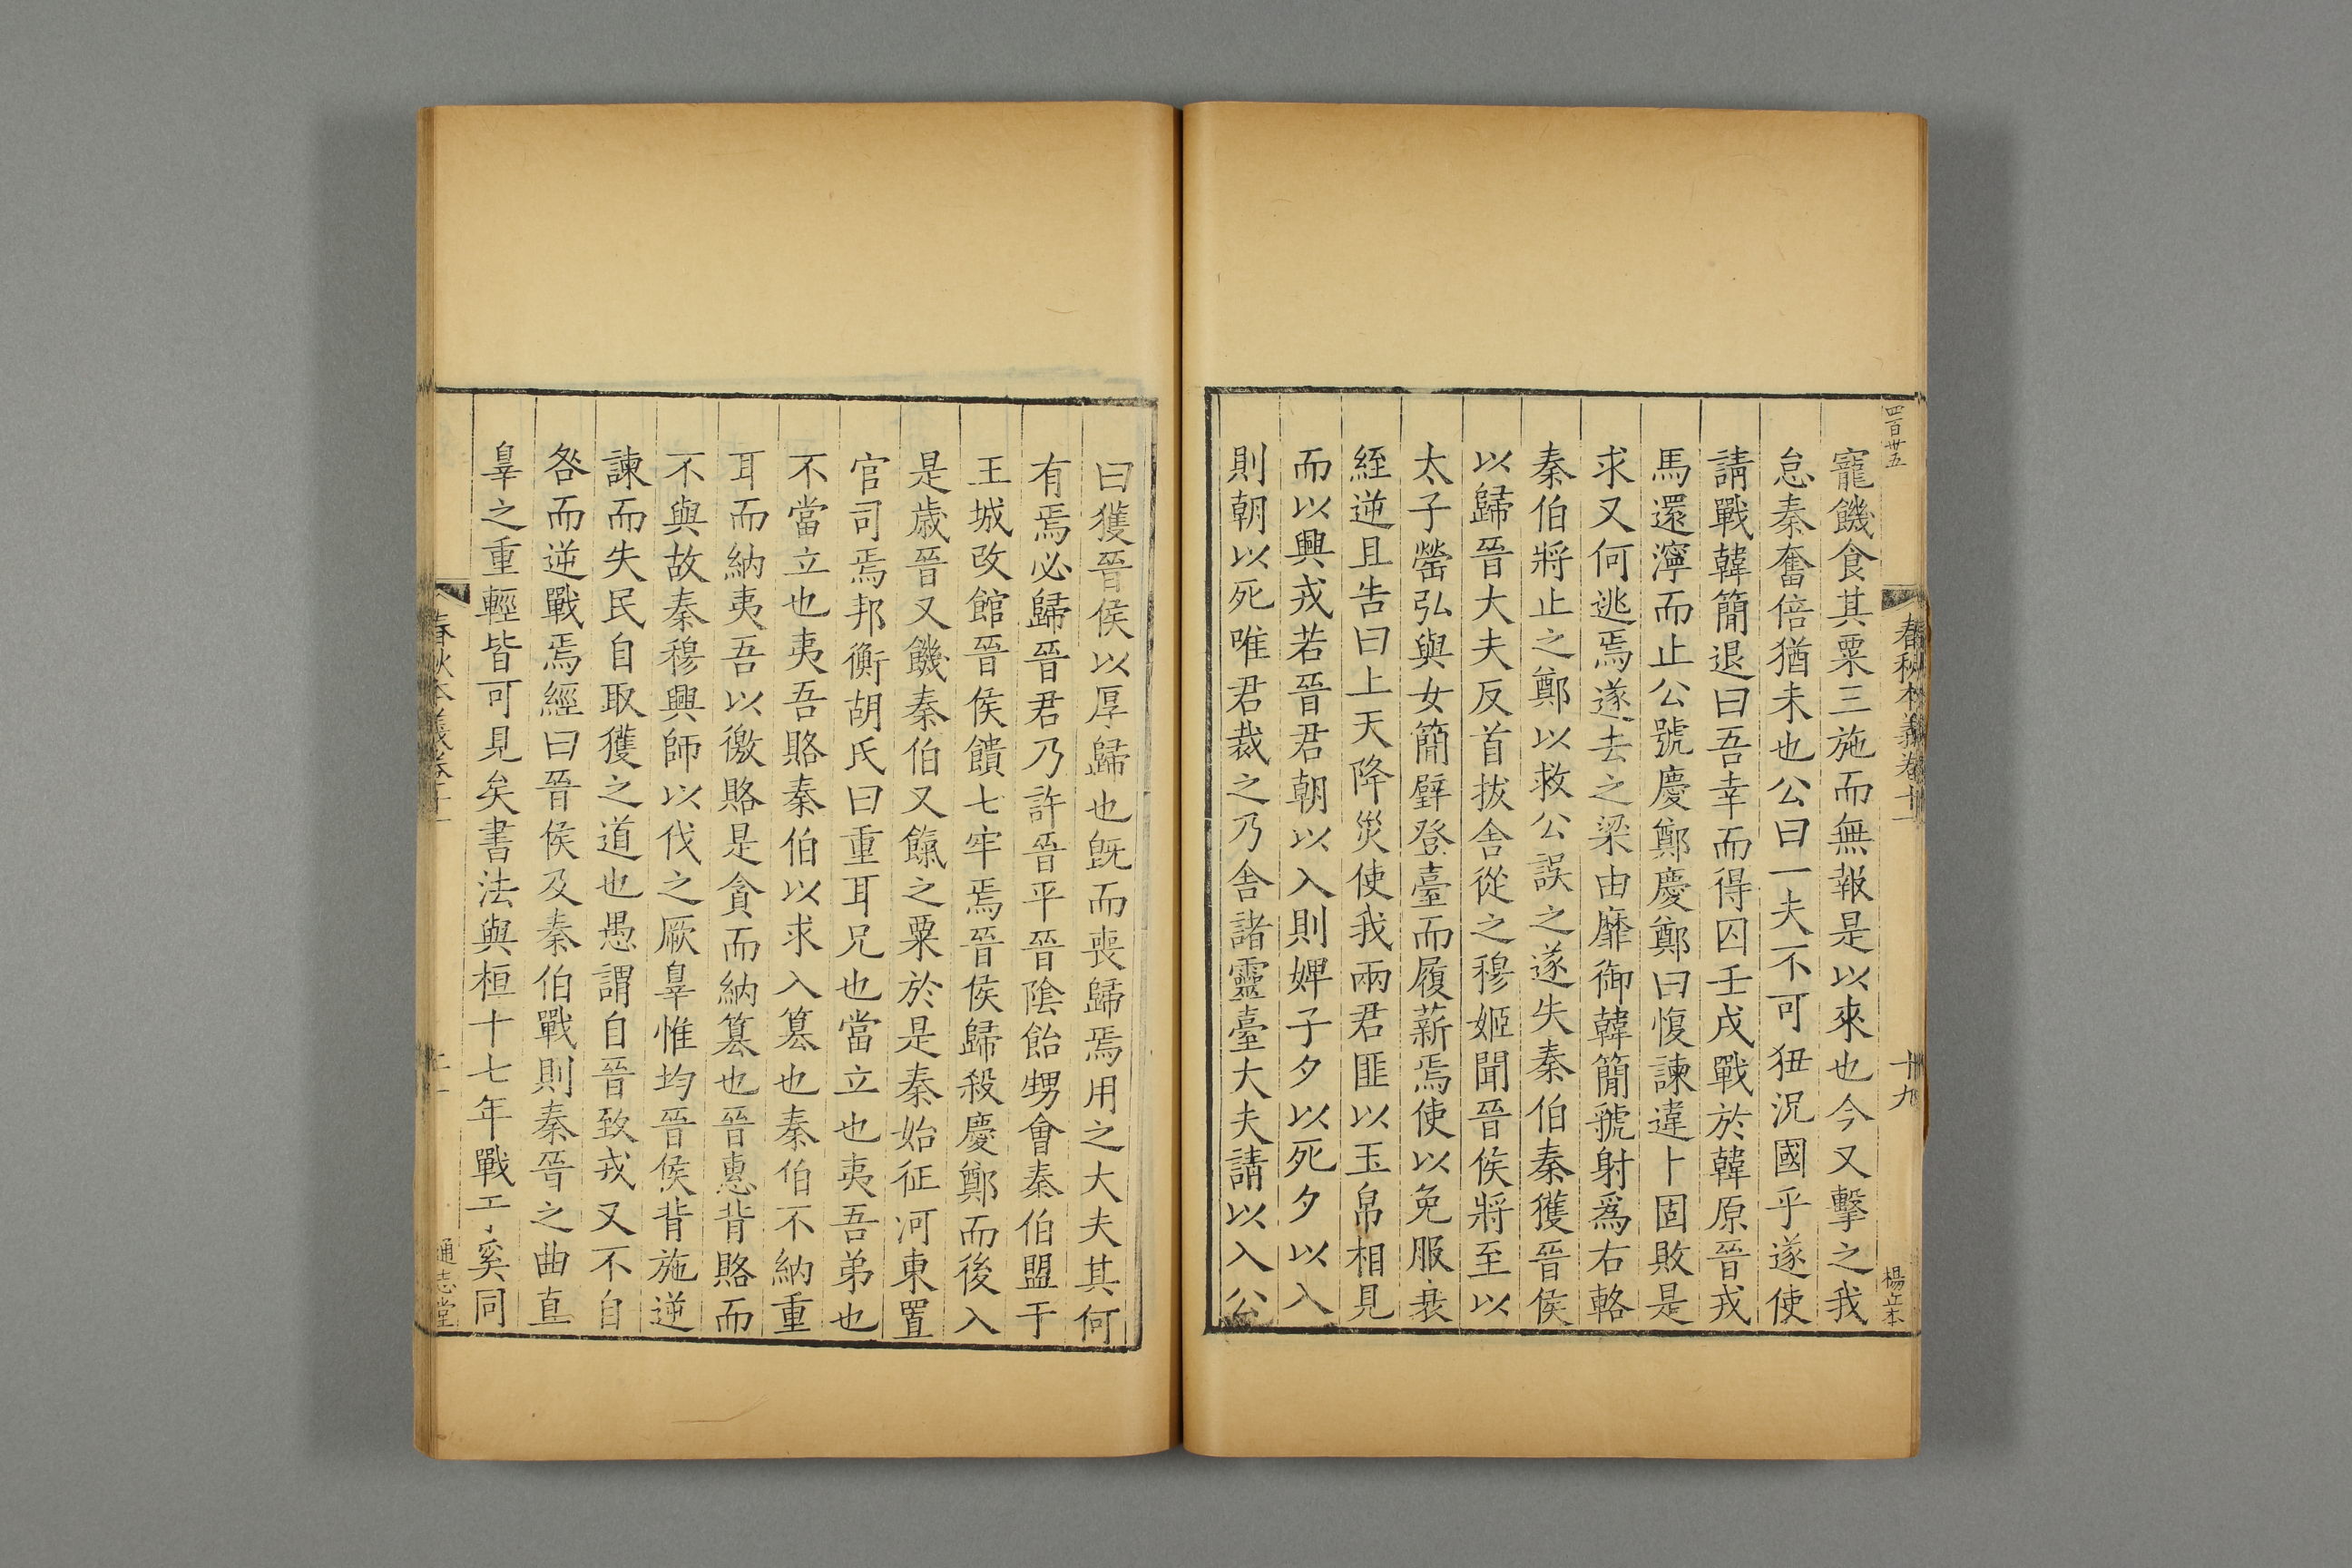 四百廿五
春秋本義卷十一
十九
楊立本
寵饑食其粟三施而無報是以來也今又擊之我
怠秦奮倍猶未也公曰一夫不可狃況國乎遂使
請戰韓簡退曰吾幸而得囚壬戌戰於韓原晉戎
馬還濘而止公號慶鄭慶鄭曰愎諫違卜固敗是
求又何逃焉遂去之梁由靡御韓簡虢射爲右輅
秦伯將止之鄭以救公誤之遂失秦伯秦獲晉侯
以歸晉大夫反首拔舍從之穆姬聞晉侯將至以
太子罃弘與女簡璧登臺而履薪焉使以免服衰
絰逆且告曰上天降災使我兩君匪以玉帛相見
而以興戎若晉君朝以入則婢子夕以死夕以入
則朝以死唯君裁之乃舍諸靈臺大夫請以入公
曰獲晉侯以厚歸也旣而喪歸焉用之大夫其何
有焉必歸晉君乃許晉平晉陰飴甥會秦伯盟于
王城改館晉侯饋七牢焉晉侯歸殺慶鄭而後入
是歲晉又饑秦伯又餼之粟於是秦始征河東置
官司焉邦衡胡氏曰重耳兄也當立也夷吾弟也
不當立也夷吾賂秦伯以求入篡也秦伯不納重
耳而納夷吾以徼賂是貪而納篡也晉惠背賂而
不與故秦穆興師以伐之厥辠惟均晉侯背施逆
諫而失民自取獲之道也愚謂自晉致戎又不自
咎而逆戰焉經曰晉侯及秦伯戰則秦晉之曲直
辠之重輕皆可見矣書法與桓十七年戰于奚同
春秋本義卷十一
通志堂